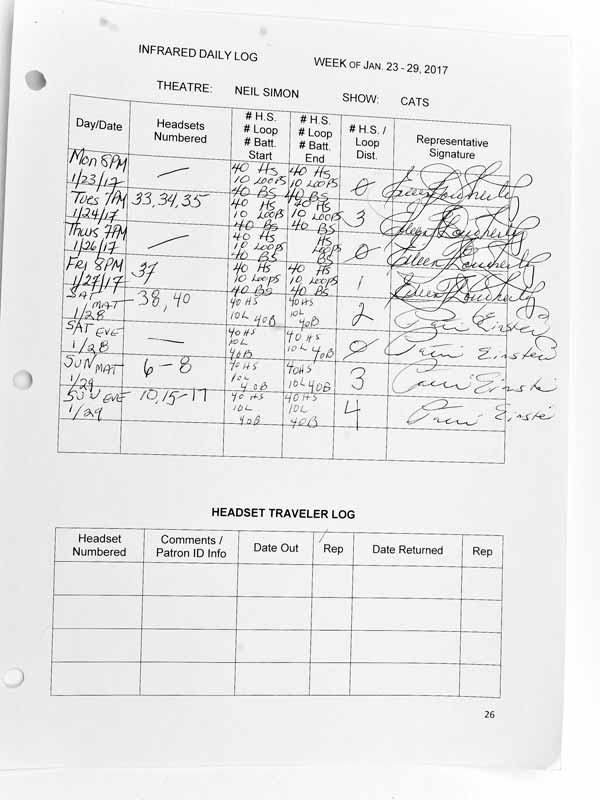 INFRARED DAILY LOG WEEK OF JAN. 23 - 29, 2017
THEATRE: NEIL SIMON SHOW: CATS
Day/Date Headsets Numbered # H.S. # Loop # Batt. Start # H.S. # Loop # Batt. End # H.S. / Loop Dist. Representative Signature
Mon 8PM 1/23/17 — 40 HS 10 LOOPS 40 BS 40 HS 10 LOOPS 40 BS 0 Eileen Dougherty
Tues 7PM 1/24/17 33, 34, 35 40 HS 10 LOOPS 40 BS 40 HS 10 LOOPS 40 BS 3 Eileen Dougherty
Thurs 7PM 1/26/17 — 40 HS 10 LOOPS 40 BS HS LOOPS BS 0 Eileen Dougherty
Fri 8PM 1/27/17 37 40 HS 10 LOOPS 40 BS 40 HS 10 LOOPS 40 BS 1 Eileen Dougherty
SAT MAT 1/28 38, 40 40 HS 10L 40B 40 HS 10L 40B 2 Einstein
SAT EVE 1/28 — 40 HS 10L 40B 40 HS 10L 40B 0 Einstein
SUN MAT 1/29 6 - 8 40 HS 10L 40B 40 HS 10L 40B 3 Einstein
SUN EVE 1/29 10, 15-17 40 HS 10L 40B 40 HS 10L 40B 4 Einstein
HEADSET TRAVELER LOG
Headset Numbered Comments / Patron ID Info Date Out Rep Date Returned Rep
26